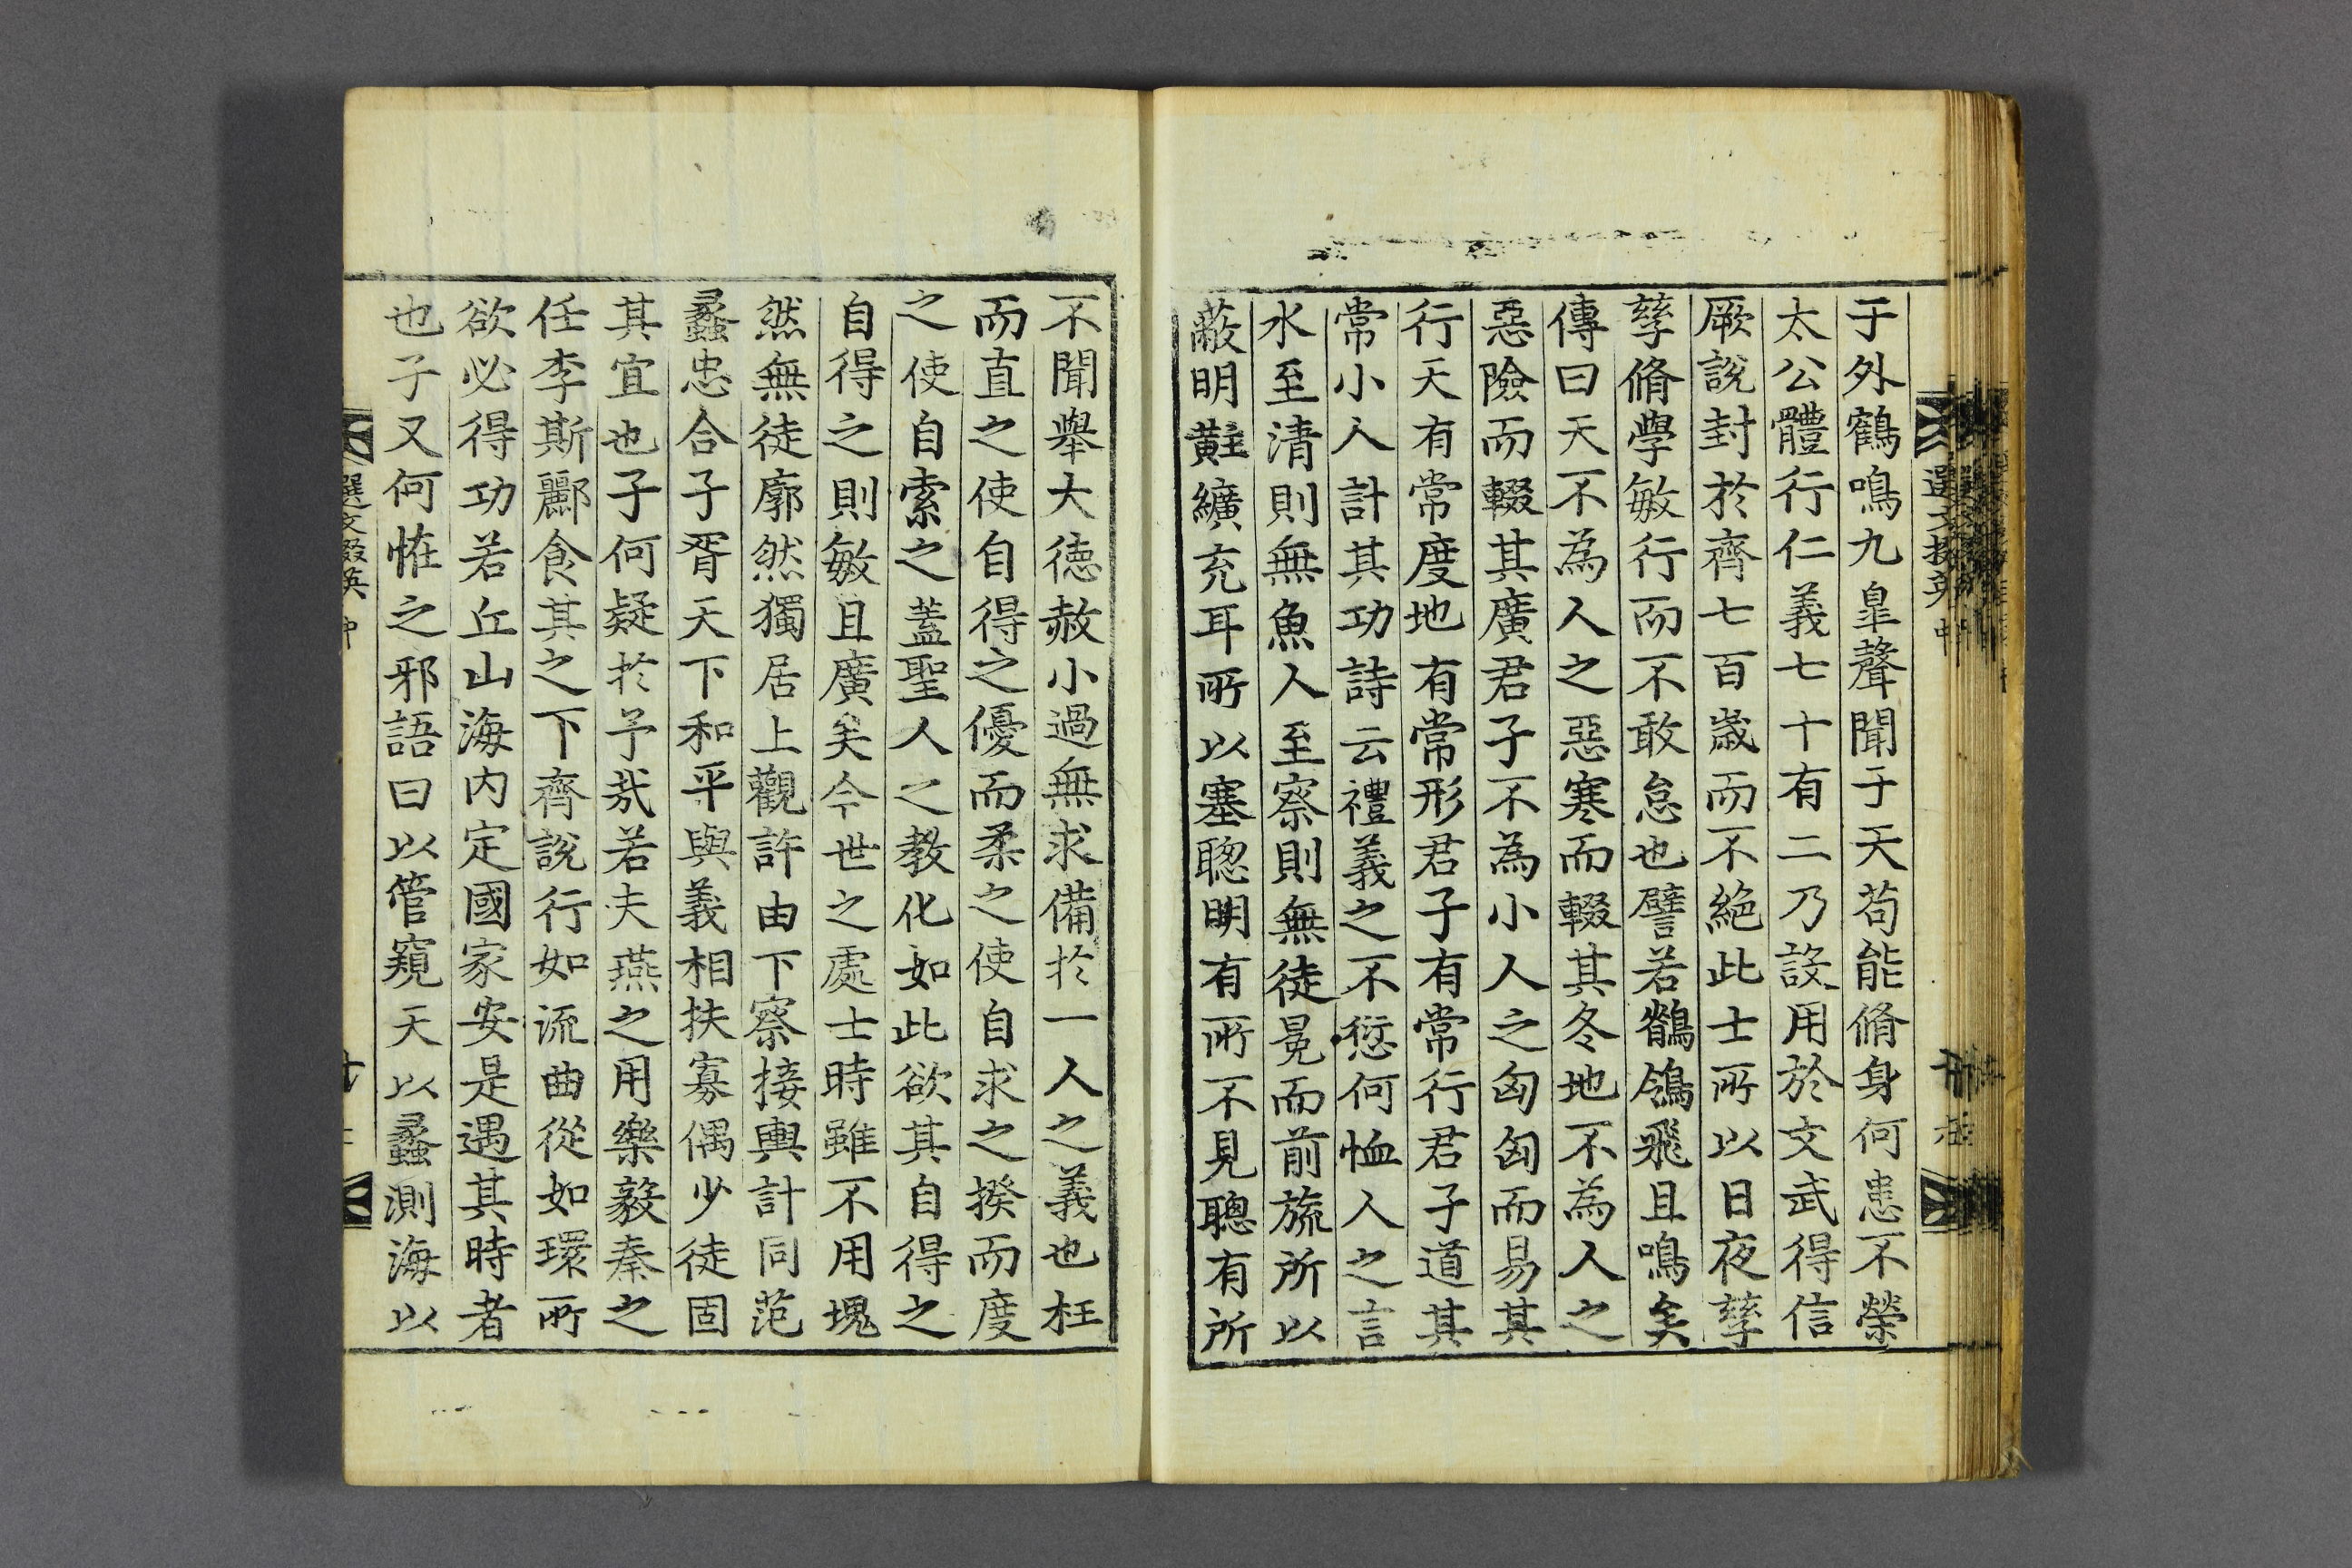 于外鶴鳴九臯聲聞于天苟能脩身何患不榮
太公體行仁義七十有二乃設用於文武得信
厥說封於齊七百歲而不絶此士所以日夜孳
孳脩學敏行而不敢怠也譬若鶺鴒飛且鳴矣
傳曰天不為人之惡寒而輟其冬地不為人之
惡險而輟其廣君子不為小人之匈匈而易其
行天有常度地有常形君子有常行君子道其
常小人計其功詩云禮義之不愆何恤人之言
水至清則無魚人至察則無徒冕而前旒所以
蔽明黈纊充耳所以塞聰明有所不見聰有所
不聞舉大德赦小過無求備於一人之義也枉
而直之使自得之優而柔之使自求之揆而度
之使自索之蓋聖人之教化如此欲其自得之
自得之則敏且廣矣今世之處士時雖不用塊
然無徒廓然獨居上觀許由下察接輿計同范
蠡忠合子胥天下和平與義相扶寡偶少徒固
其宜也子何疑於予哉若夫燕之用樂毅秦之
任李斯酈食其之下齊說行如流曲從如環所
欲必得功若丘山海内定國家安是遇其時者
也子又何恠之邪語曰以管窺天以蠡測海以
選文掇英 中